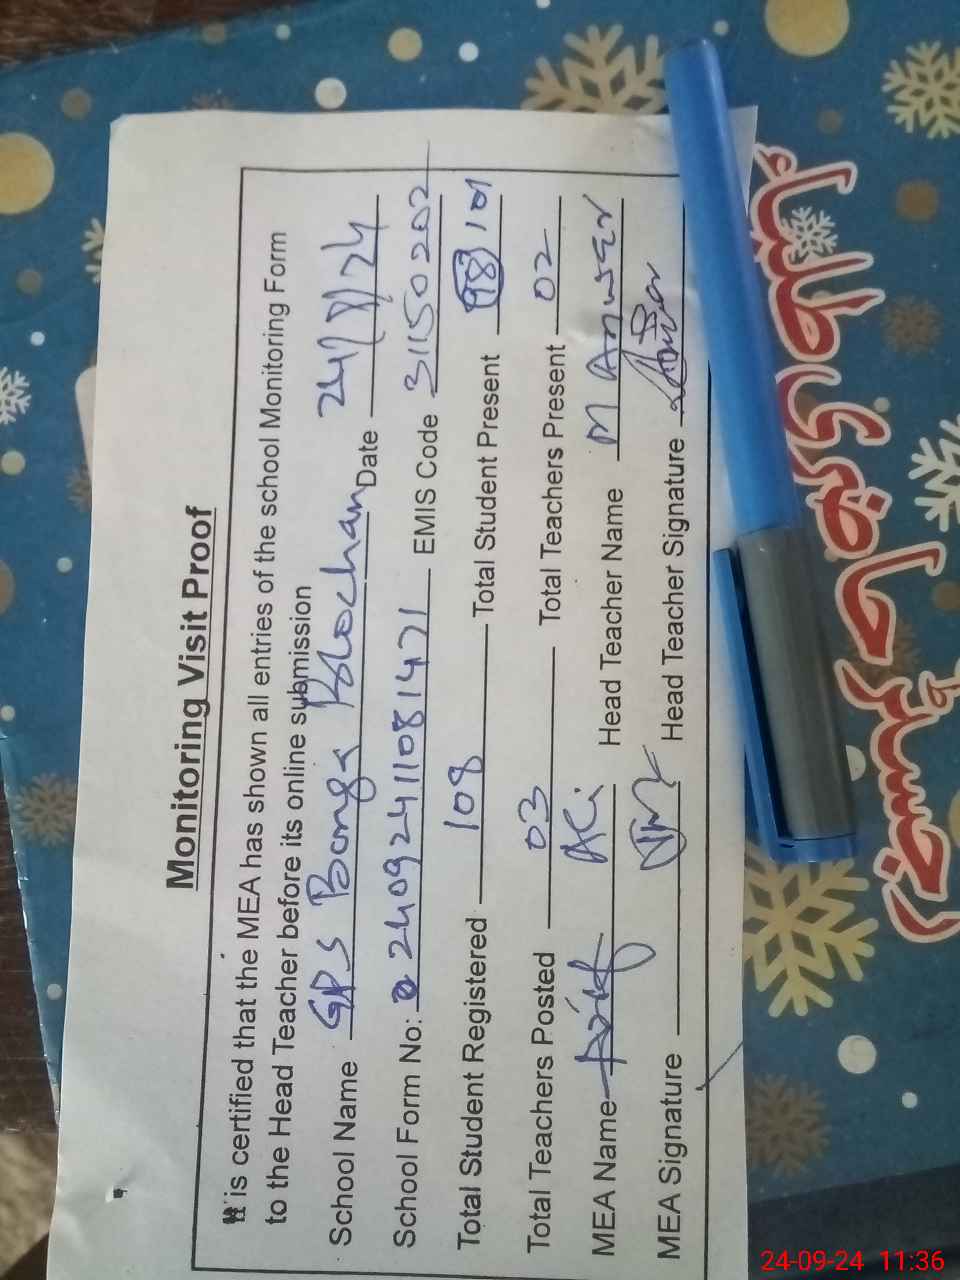 Monitoring Visit Proof
It is certified that the MEA has shown all entries of the school Monitoring Form
to the Head Teacher before its online submission
School Name GPS Banga Balochan Date 24/9/24
School Form No: 24092411081471 EMIS Code 31150202
Total Student Registered 108 Total Student Present 98 101
Total Teachers Posted 03 Total Teachers Present 02
MEA Name Ali Head Teacher Name M Anwer
MEA Signature Head Teacher Signature
رجسٹر حاضری طلباء
24-09-24 11:36